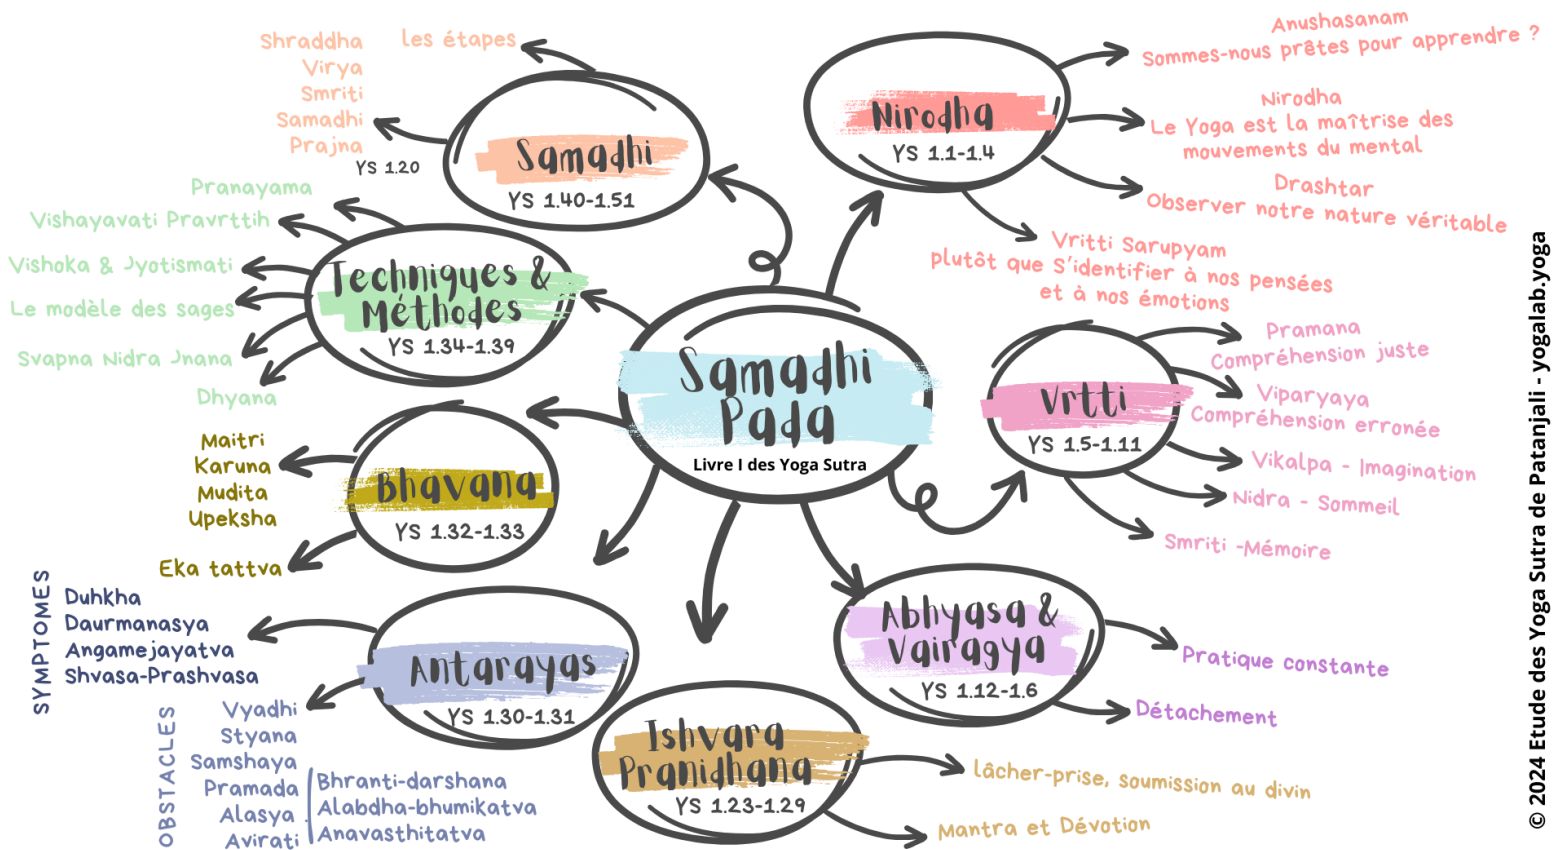 Samadhi
Pada
Livre I des Yoga Sutra
Nirodha
YS 1.1-1.4
Anushasanam
Sommes-nous prêtes pour apprendre ?
Nirodha
Le Yoga est la maîtrise des
mouvements du mental
Drashtar
Observer notre nature véritable
Vritti Sarupyam
plutôt que S'identifier à nos pensées
et à nos émotions
Vrtti
YS 1.5-1.11
Pramana
Compréhension juste
Viparyaya
Compréhension erronée
Vikalpa - Imagination
Nidra - Sommeil
Smriti -Mémoire
Abhyasa &
Vairagya
YS 1.12-1.6
Pratique constante
Détachement
Ishvara
Pranidhana
YS 1.23-1.29
lâcher-prise, soumission au divin
Mantra et Dévotion
Antarayas
YS 1.30-1.31
SYMPTOMES
Duhkha
Daurmanasya
Angamejayatva
Shvasa-Prashvasa
OBSTACLES
Vyadhi
Styana
Samshaya
Pramada
Alasya
Avirati
Bhranti-darshana
Alabdha-bhumikatva
Anavasthitatva
Bhavana
YS 1.32-1.33
Maitri
Karuna
Mudita
Upeksha
Eka tattva
Techniques &
Méthodes
YS 1.34-1.39
Pranayama
Vishayavati Pravrttih
Vishoka & Jyotismati
Le modèle des sages
Svapna Nidra Jnana
Dhyana
Samadhi
YS 1.40-1.51
les étapes
Shraddha
Virya
Smriti
Samadhi
Prajna
YS 1.20
© 2024 Etude des Yoga Sutra de Patanjali - yogalab.yoga